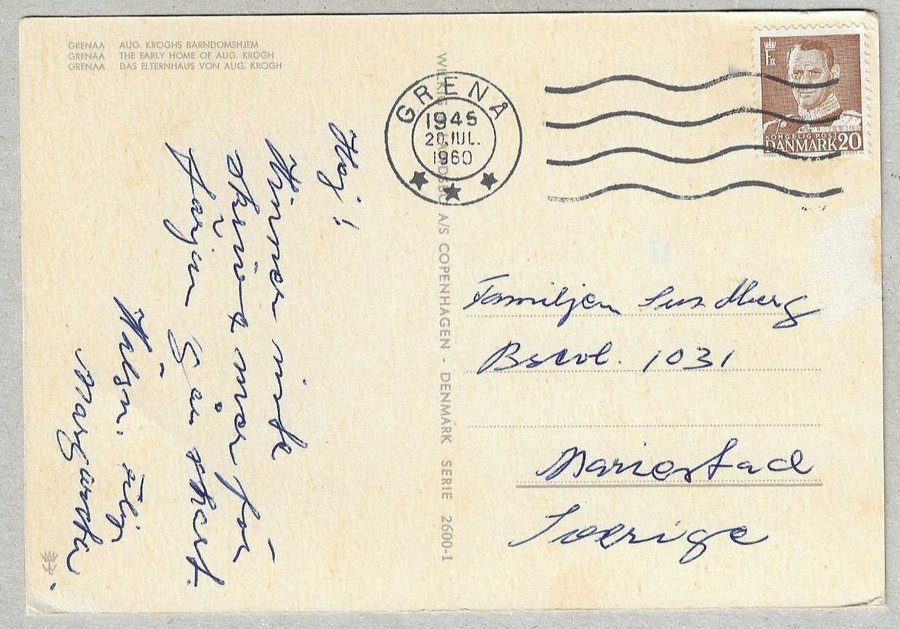 GRENAA AUG. KROGHS BARNDOMSHJEM
GRENAA THE EARLY HOME OF AUG. KROGH
GRENAA DAS ELTERNHAUS VON AUG. KROGH
Hej!
Hinner inte
skriva mer för
färjan går snart.
Hälsn. 
Margareta.
A/S COPENHAGEN - DENMARK SERIE 2600-1
GRENÅ
1945
20 JUL.
1960
KONGELIG POST
DANMARK 20
Familjen Sundberg
Bscvl. 1031
Mariestad
Sverige